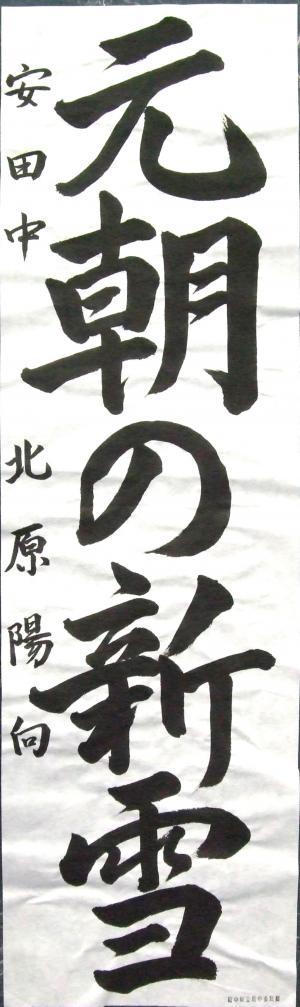 元朝の新雪
安田中 北原陽向